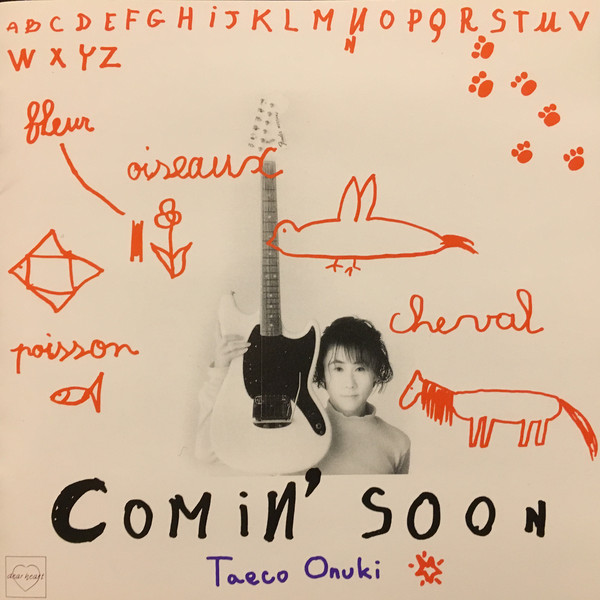 ABCDEFGHiJKLMNOPQRSTUV
N
WXYZ
fleur
oiseaux
cheval
poisson
COMiN' SOON
Taeco Onuki
dear heart